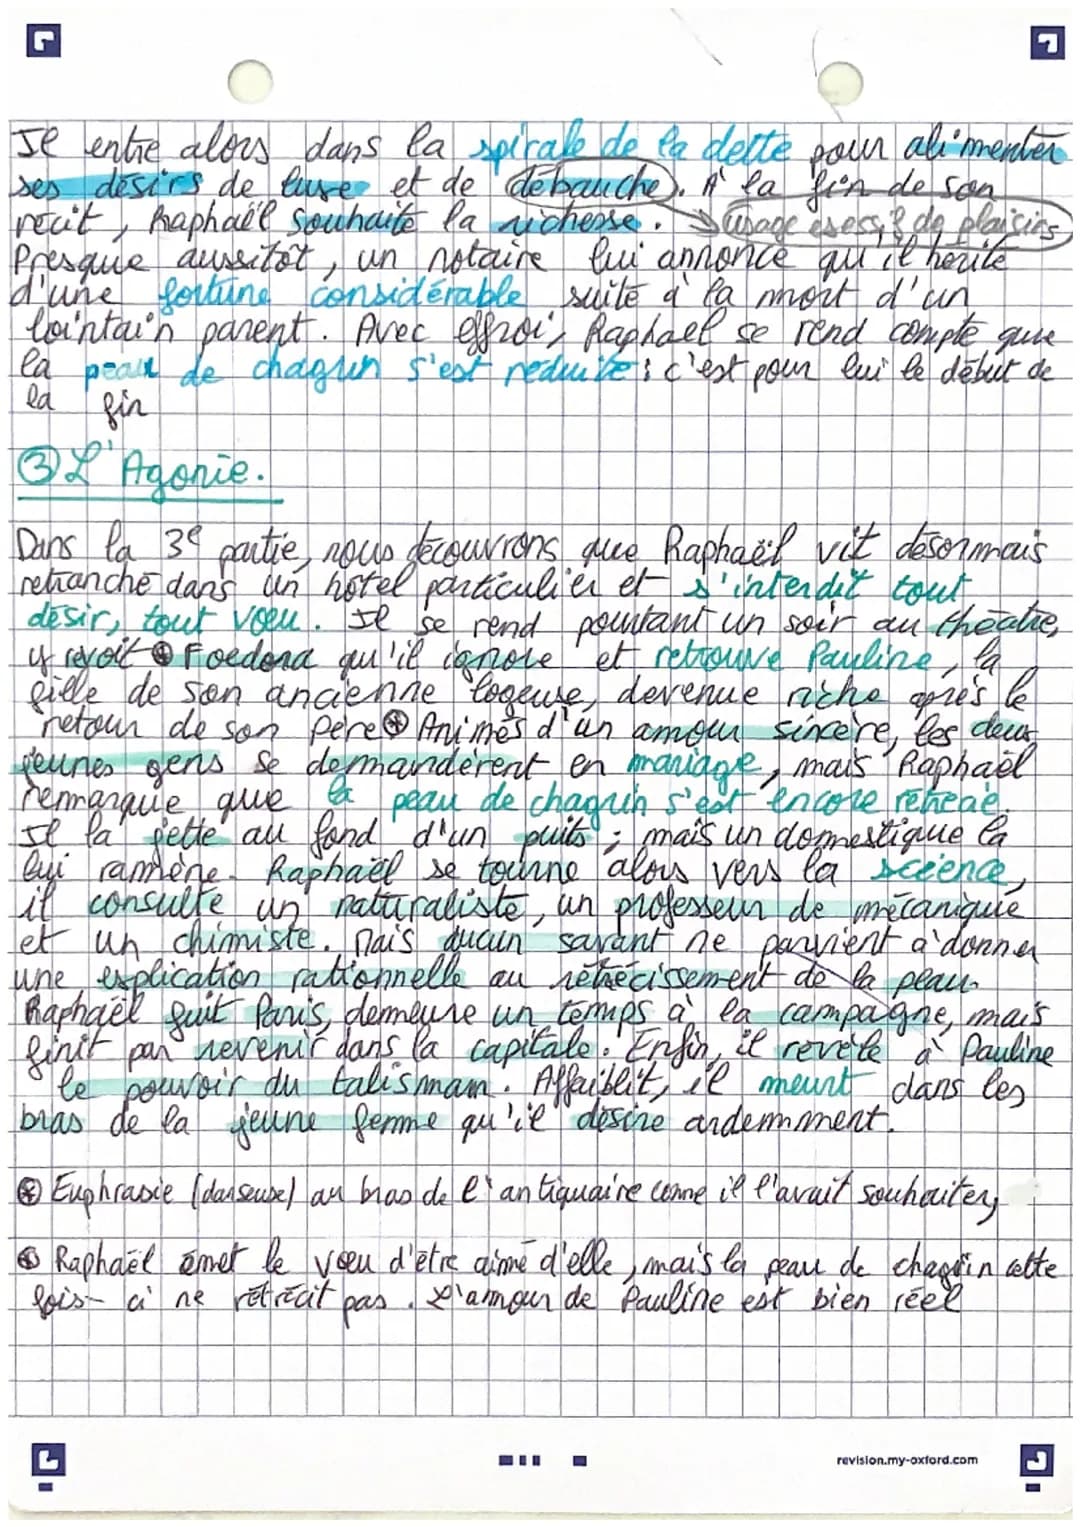 Il entre alors dans la spirale de la dette pour alimenter
ses désirs de luxe et de débauche. À la fin de son
récit, Raphaël souhaite la richesse. usage exessif de plaisirs
Presque aussitôt, un notaire lui annonce qu'il hérite
d'une fortune considérable suite à la mort d'un
lointain parent. Avec effroi, Raphaël se rend compte que
la peau de chagrin s'est réduite : c'est pour lui le début de
la fin
③ L'Agonie.
Dans la 3e partie, nous découvrons que Raphaël vit désormais
retranché dans un hôtel particulier et s'interdit tout
désir, tout voeu. Il se rend pourtant un soir au théâtre,
y revoit ⊛ Foedora qu'il ignore et retrouve Pauline, la
fille de son ancienne logeuse, devenue riche après le
retour de son père ⊛ Animés d'un amour sincère, les deux
jeunes gens se demandèrent en mariage, mais Raphaël
remarque que la peau de chagrin s'est encore rétrécie.
Il la jette au fond d'un puits ; mais un domestique la
lui ramène. Raphaël se tourne alors vers la science,
il consulte un naturaliste, un professeur de mécanique
et un chimiste. Mais aucun savant ne parvient à donner
une explication rationnelle au rétrécissement de la peau.
Raphaël fuit Paris, demeure un temps à la campagne, mais
finit par revenir dans la capitale. Enfin, il révèle à Pauline
le pouvoir du talismam. Affaiblit, il meurt dans les
bras de la jeune femme qu'il désire ardemnment.
⊛ Euphrasie (danseuse) au bras de l'antiquaire comme il l'avait souhaiter,
⊛ Raphaël émet le voeu d'être aimé d'elle, mais la peau de chagrin cette
fois-ci ne rétrécit pas. L'amour de Pauline est bien réel
revision.my-oxford.com